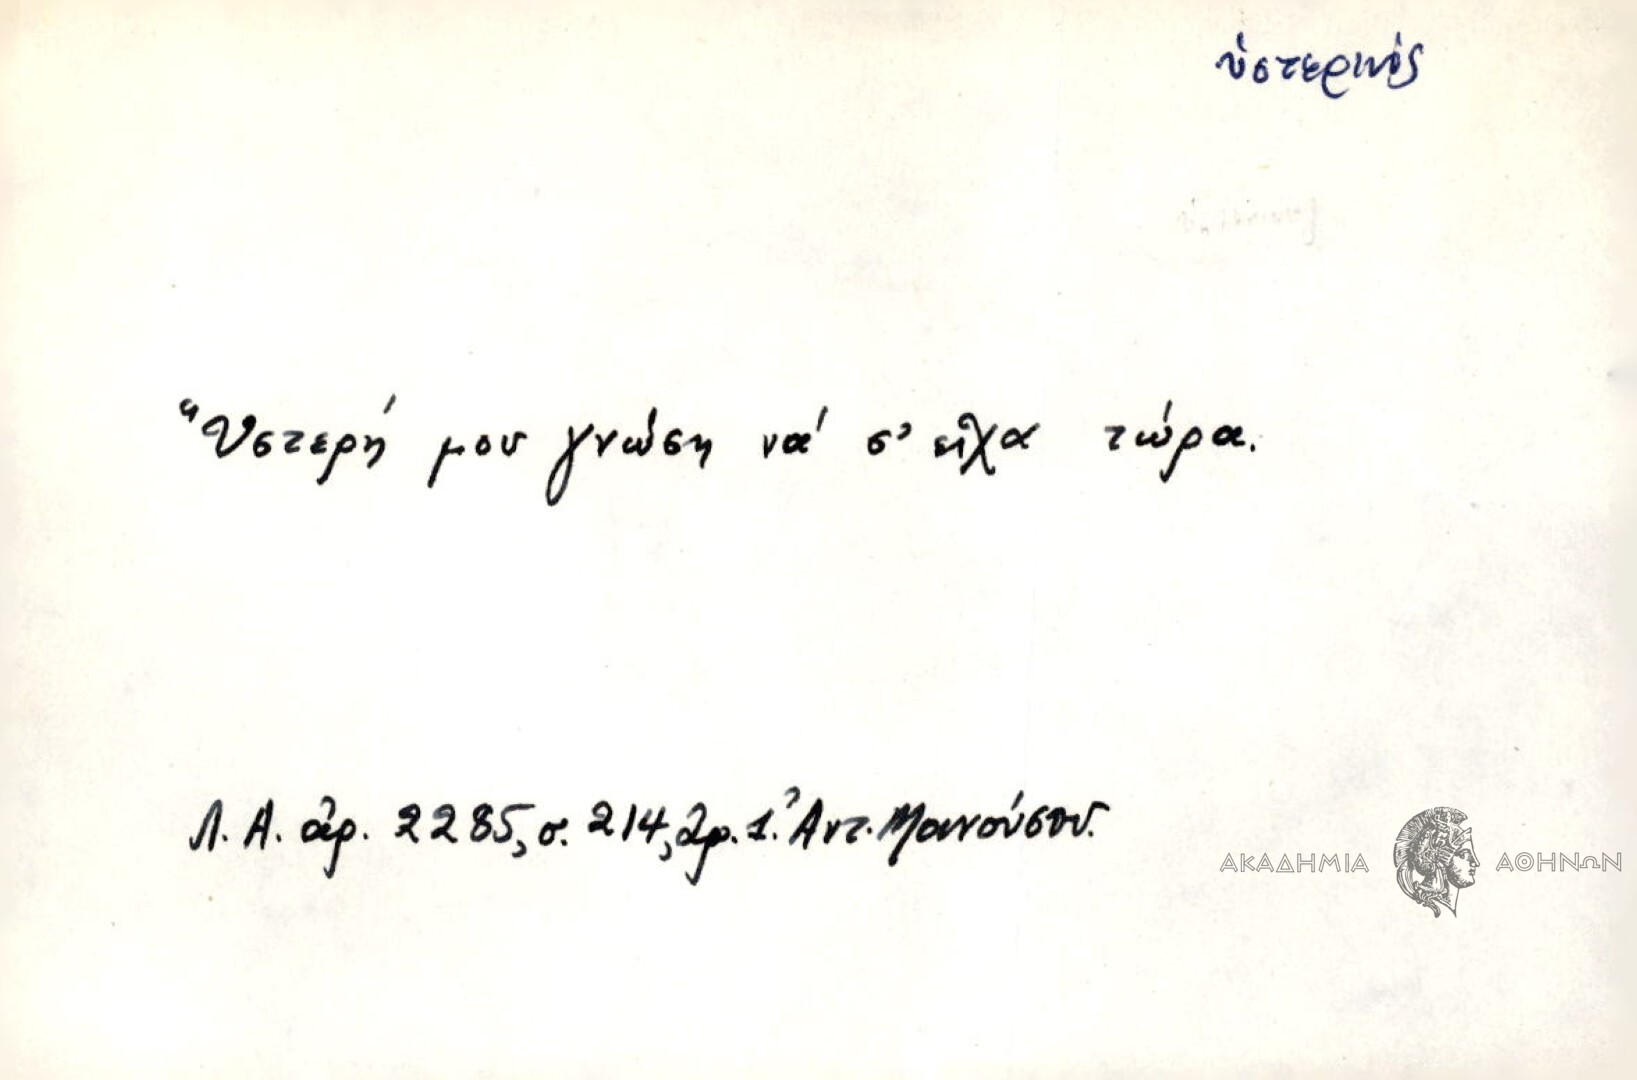 ὑστερινός
Ὑστερή μου γνώση νά σ' εἶχα τώρα.
Λ. Α. ἀρ. 2285, σ. 214, ἀρ. 1. Ἀντ. Μανούσου.
ΑΚΑΔΗΜΙΑ ΑΘΗΝΩΝ